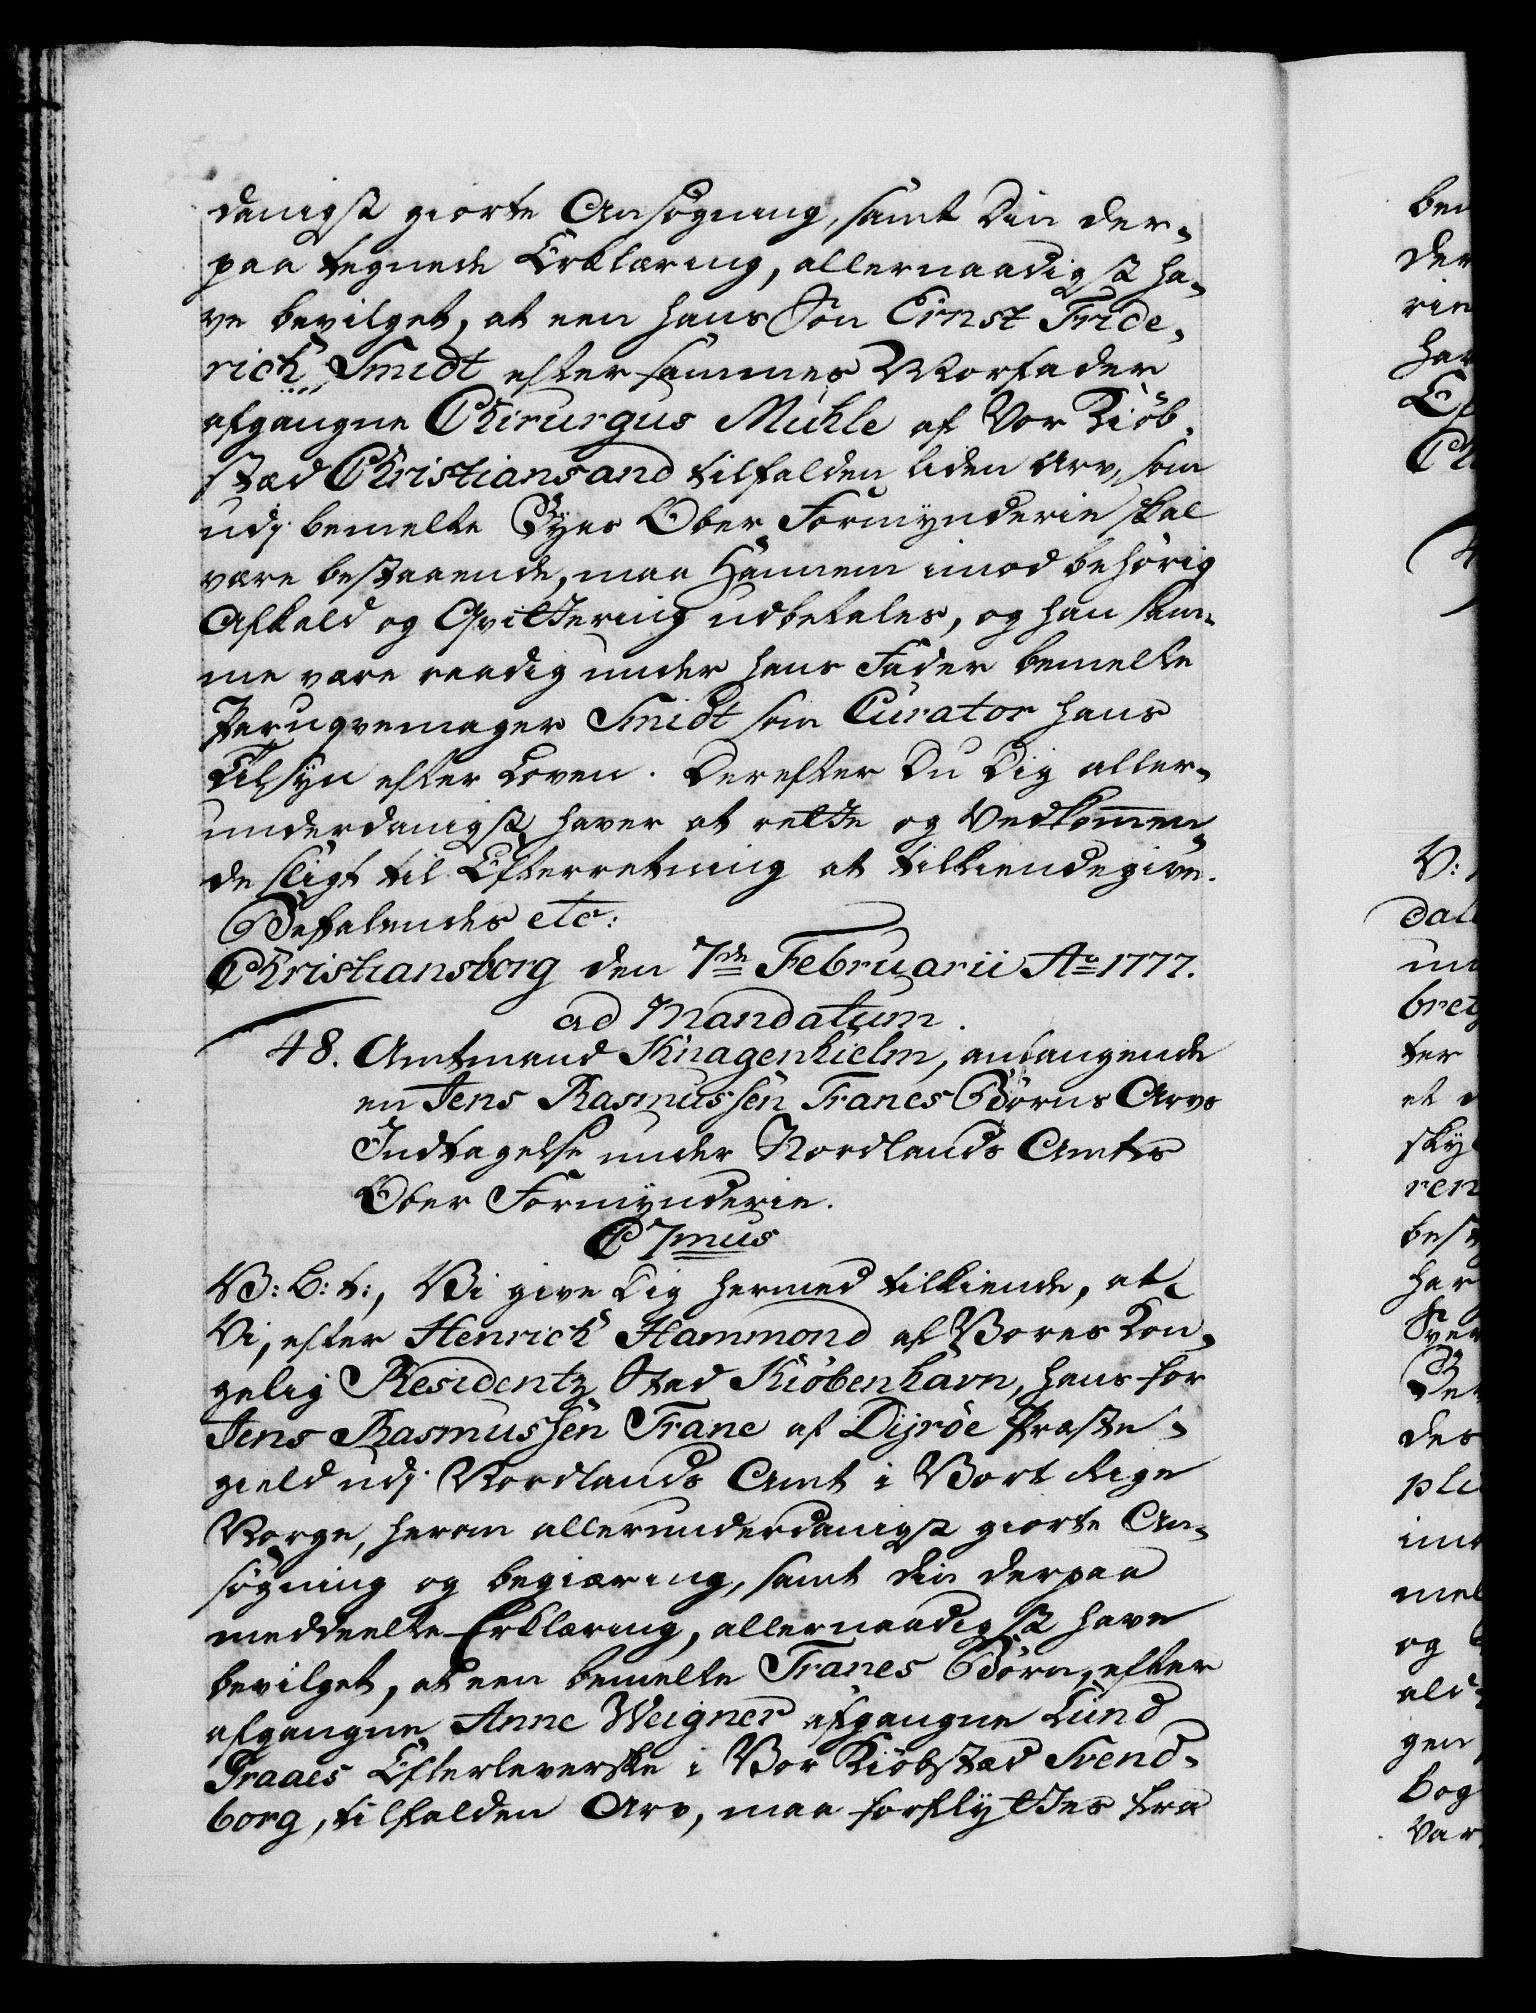 danigst giorte Ansøgning, samt Din der-
paa tegnede Erklæring, allernaadigst ha-
ve bevilget, at een hans Søn Ernst Fride-
rich Smidt efter sammes Morfader
afgangne Chirurgus Mühle af Vor Kiøb-
stæd Christiansand tilfalden liden Arv, som
udj bemelte Byes Ober Formynderie skal
være bestaaende, maa Hannem imod behørig
Afkald og Qvittering udbetales, og han sam-
me være raadig under hans Fader bemelte
Paruqvemager Smidt som Curator hans
Tilsyn efter Loven. Derefter Du Dig aller-
underdanigst haver at rette og Vedkommen-
de sligt til Efterretning at tilkiendegive.
Befalendes etc:
Christiansborg den 7de Februarii Ao 1777.
ad Mandatum.
48. Amtmand Knagenhielm, anlangende
en Jens Rasmussen Tranes Børns Arvs
Indtagelse under Nordlands Amts
Ober Formynderie.
C 7mus
V: G: T:, Vi give Dig hermed tilkiende, at
Vi, efter Henrich Hammond af Vores Kon-
gelig Residentz Stad Kiøbenhavn, hans for
Jens Rasmussen Trane af Dijrøe Præste-
gield udj Nordlands Amt i Vort Rige
Norge, herom allerunderdanigst giorte An-
søgning og begiæring, samt din derpaa
meddeelte Erklæring, allernaadigst have
bevilget, at een bemelte Tranes Børn, efter
afgangne Anne Weigner afgangne Lund
Praaes Efterleverske i Vor Kiøbstæd Svend-
borg, tilfalden Arv, maa forflyttes fra